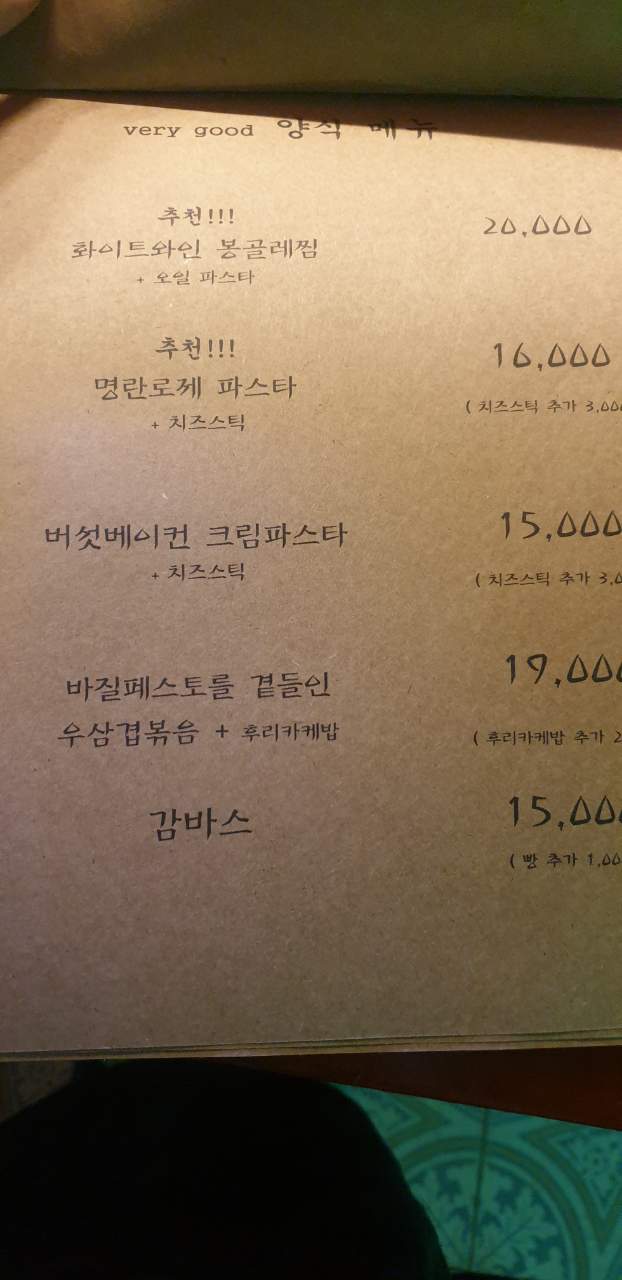 very good 양식 메뉴
추천!!!
화이트와인 봉골레찜
20,000
+ 오일 파스타
추천!!!
명란로제 파스타
16,000
+ 치즈스틱
( 치즈스틱 추가 3,00
버섯베이컨 크림파스타
15,000
+ 치즈스틱
( 치즈스틱 추가 3,0
바질페스토를 곁들인
우삼겹볶음 + 후리카케밥
19,000
( 후리카케밥 추가 2
감바스
15,000
( 빵 추가 1,00